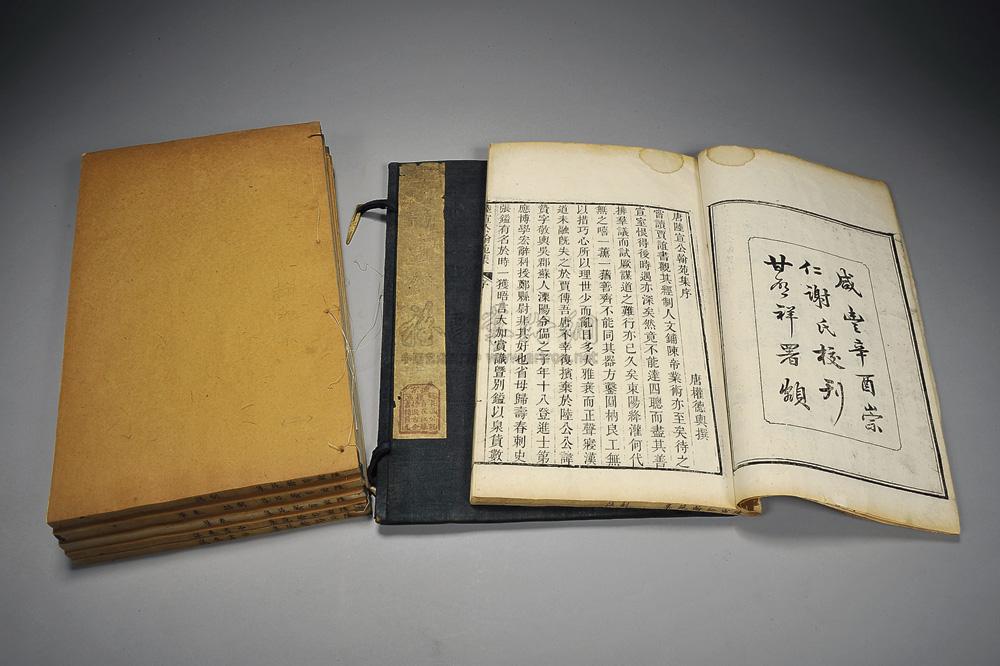 咸豐辛酉崇
仁謝氏校刊
甘熙祥署額
唐陸宣公翰苑集序
唐權德輿撰
嘗讀賈誼書觀其經制人文鋪陳帝業術亦至矣待之
宣室恨得後時遇亦深矣然竟不能達四聰而盡其善
排羣議而試厥謀道之難行亦已久矣東陽絳灌何代
無之嘻一薰一蕕善齊不能同其器方鑿圓枘良工無
以措巧心所以理世少而亂日多大雅衰而正聲寢漢
道未融旣失之於賈傅吾唐不幸復擯棄於陸公公諱
贄字敬輿吳郡蘇人溧陽令偘之子年十八登進士第
應博學宏辭科授鄭縣尉非其好也省母歸壽春刺史
張鎰有名於時一獲晤言大加賞識暨別鎰以泉貨數
陸宣公翰苑集 序